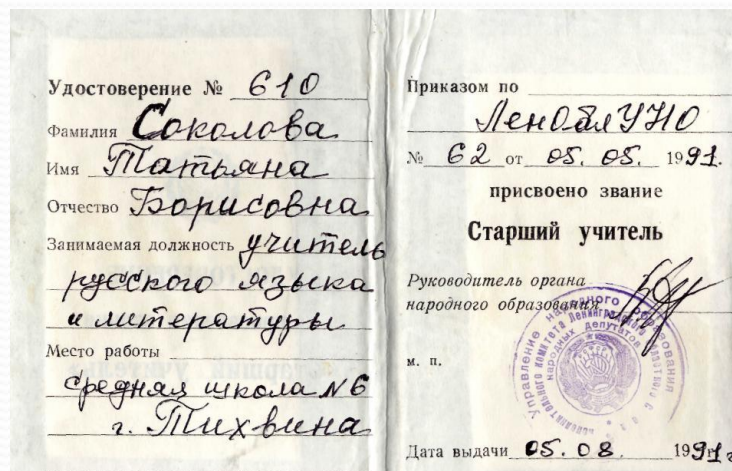 Удостоверение № 610
Фамилия Соколова
Имя Татьяна
Отчество Борисовна
Занимаемая должность учитель
русского языка
и литературы
Место работы
средняя школа № 6
г. Тихвина
Приказом по
ЛенОблУНО
№ 62 от 05.05. 1991.
присвоено звание
Старший учитель
Руководитель органа
народного образования
м. п.
Управление народного образования
исполнительного комитета Ленинградского областного
народных депутатов
Дата выдачи 05.08. 1991 г.